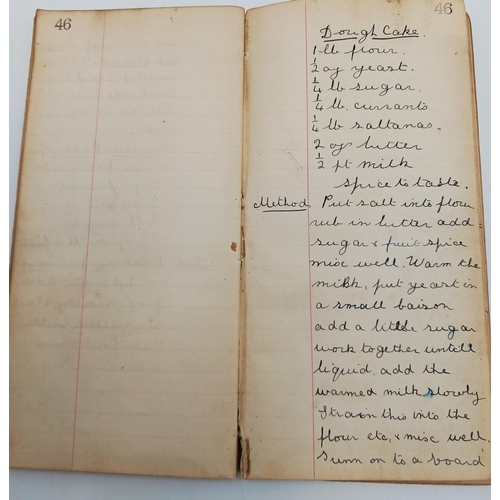 46
46
Dough Cake.
1 lb flour.
½ oz yeast.
¼ lb sugar.
¼ lb. currants
¼ lb saltanas.
2 ozs butter
½ pt milk
spice to taste.
Method. Put salt into flour
rub in butter add
sugar & fruit spice
misc well. Warm the
milk, put yeast in
a small baison
add a little sugar
work together untill
liquid, add the
warmed milk slowly
Strain this into the
flour etc, & misc well.
Turn on to a board